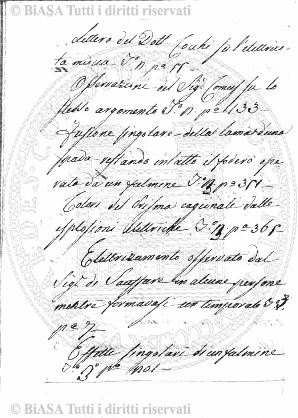 © BIASA Tutti i diritti riservati
Lettera del Dott. Cocchi su l'elettrici-
tà T.° p.a
Osservazione del Sig. Comus su lo
stesso argomento T.° p.a 433
Fusione singolare della lama d'una
spada restando intatto il fodero ope-
rato da un fulmine T.° p.a 351
Colori del Prisma cagionati dalle
esplosioni elettriche T.° p.a 365
Elettrizzamento osservato dal
Sig. di Saussure in alcune persone
mentre formavasi un temporale T.°
p.a 7
Effetti singolari di un fulmine
T.° p.a 401
© BIASA Tutti i diritti riservati